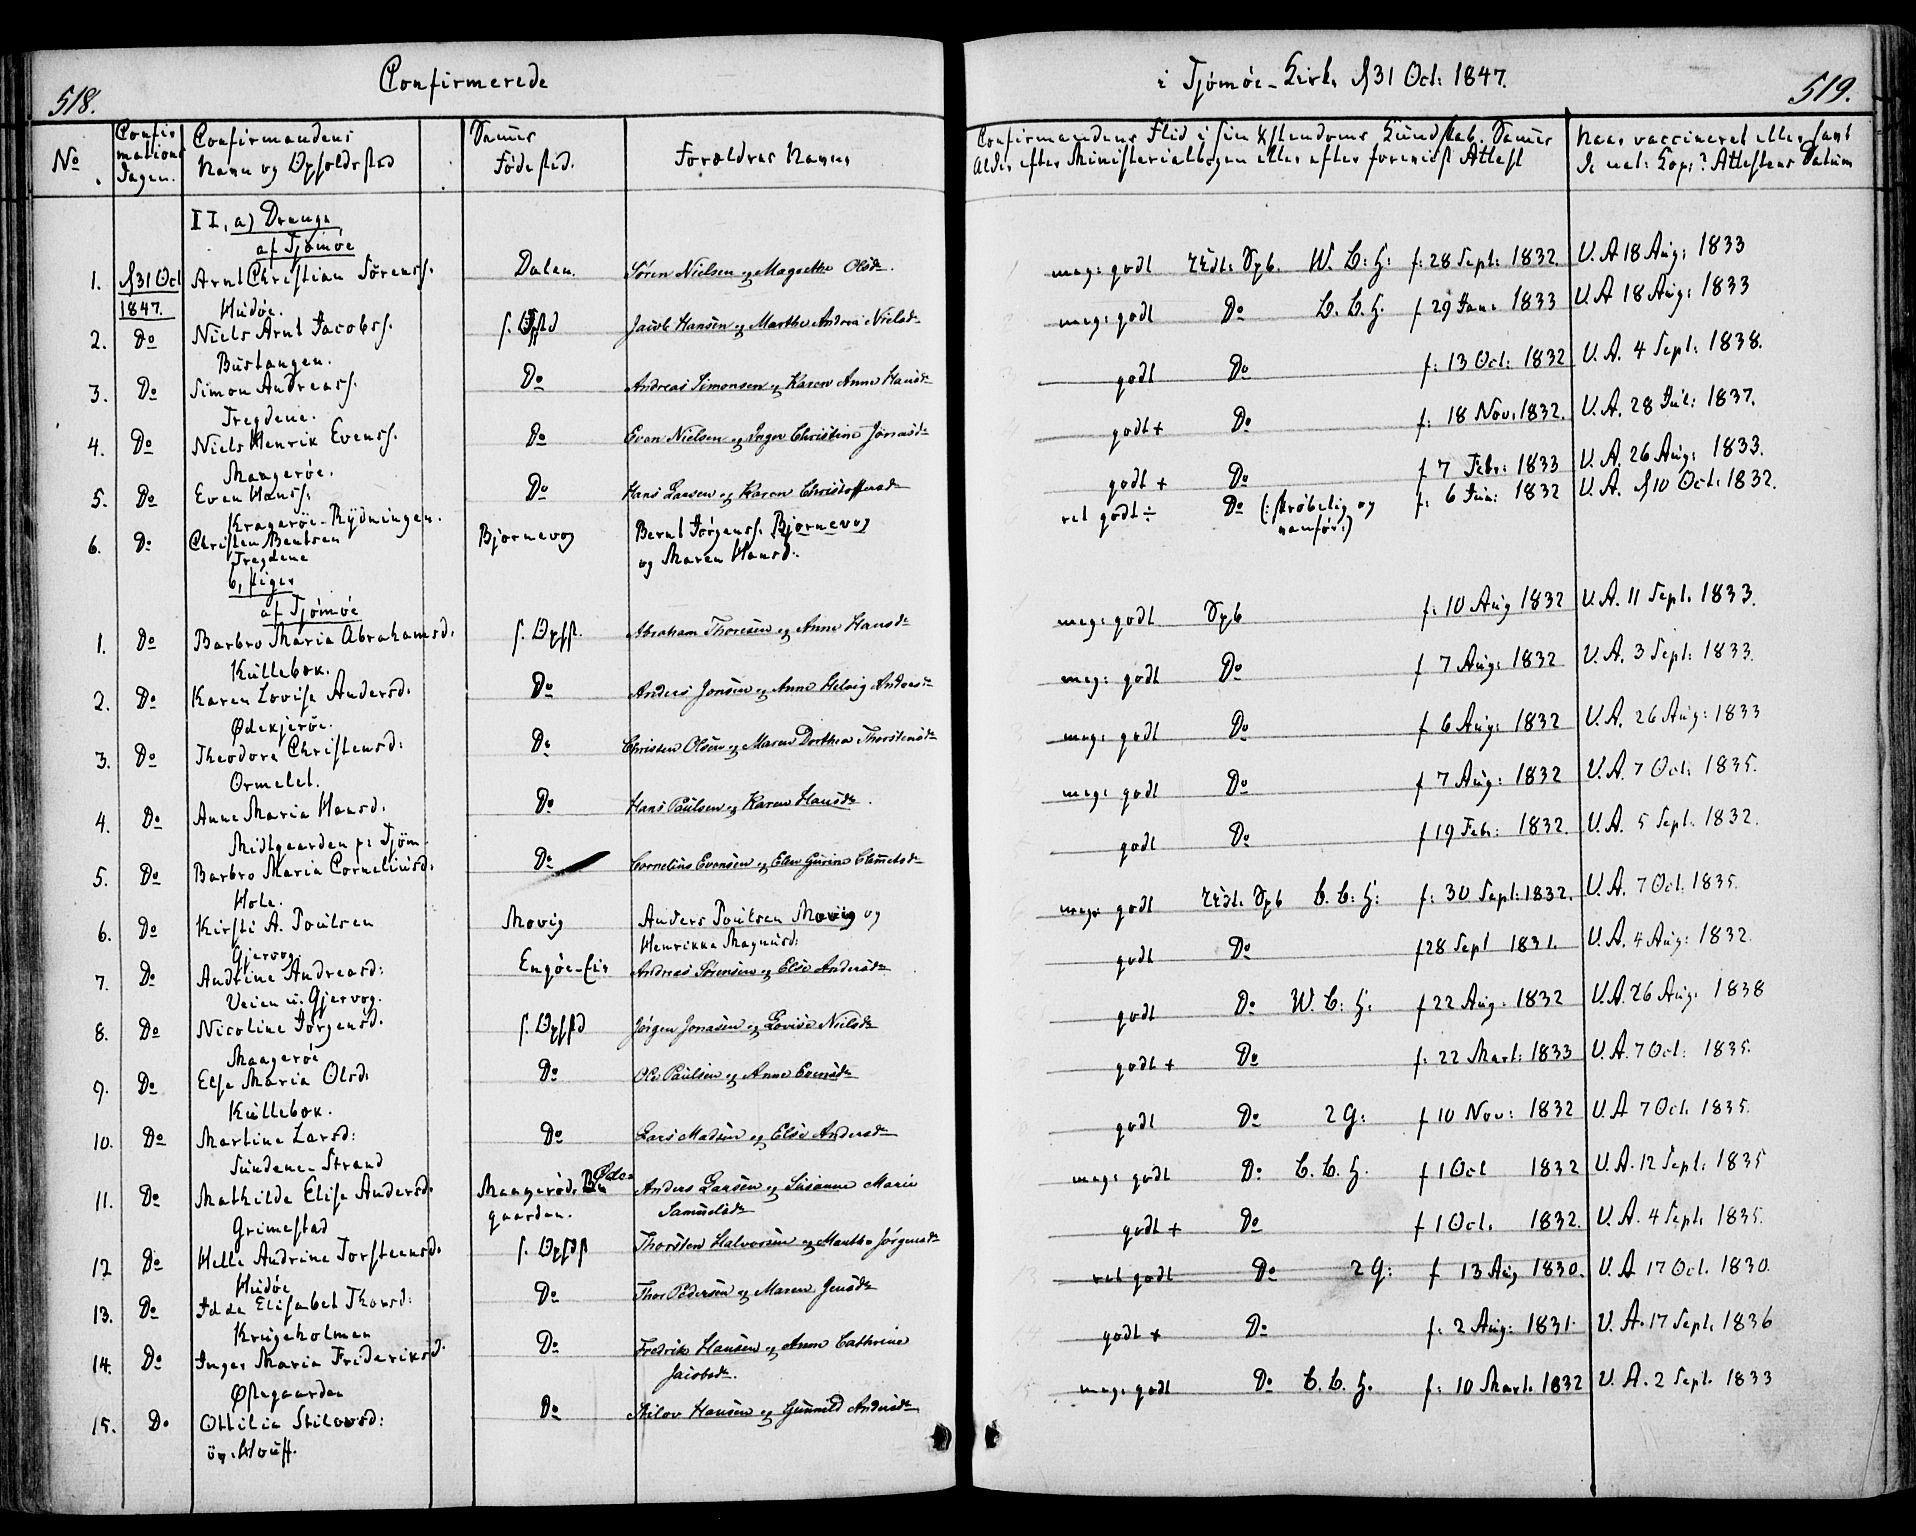 518.
Confirmerede
No
Confirmations
Dagen.
Confirmandens
Navn og Opholdssted
Sammes
Fødested.
Forældres Navne
II, a) Drenge
af Tjømøe
1. d 31 Oct 1847. Arnt Christian Sørenss. Dalen. Søren Nielsen og Magrethe Olsdr.
Hudøe.
2. Do Niels Arnt Jacobss. s. Opst Jacob Hansen og Marthe Andrea Nielsdr
Bustangen.
3. Do Simon Andreass. Do Andreas Simonsen og Karen Anne Hansdr
Tregdene.
4. Do Niels Henrik Evenss. Do Even Nielsen og Inger Christine Jonasdr
Maagerøe.
5. Do Even Hanss. Do Hans Larsen og Karen Christoffersdr
Kragerøe-Rydningen.
6. Do Christen Bentsen Bjørnevog Bernt Jørgenss. Bjørnevog
Tregdene og Maren Hansd.
b, Piger
af Tjømøe
1. Do Barbro Maria Abrahamsd. s. Opst. Abraham Thoresen og Anne Hansdr
Kullebok.
2. Do Karen Lovise Andersd. Do Anders Jonsen og Anne Helvig Andersdr
Ødekjerøe.
3. Do Theodora Christensd: Do Christen Olsen og Maren Dorthea Thorstensdr
Ormelet.
4. Do Anne Maria Hansd. Do Hans Paulsen og Karen Hansdr.
Midtgaarden p: Tjøm
5. Do Barbro Maria Corneliusd. Do Cornelius Evensen og Elen Gurine Clemetsdr
Hole.
6. Do Kirsti A. Poulsen Movig Anders Poulsen Movig og
Gjervog Henrikke Magnusd:
7. Do Andrine Andreasd: Engøe- Andreas Sørensen og Else Andersdr
Veien u. Gjervog.
8. Do Nicoline Jørgensd. s. Opst Jørgen Jonasen og Lovise Nielsdr
Maagerøe
9. Do Else Maria Olsd: Do Ole Paulsen og Anne Evensdr
Kullebok.
10. Do Martine Larsd: Do Lars Madsen og Else Andersdr
Sundene-Strand
11. Do Mathilde Elise Andersd. Maagerød. Anders Larsen og Susanne Marie
Grimestad gaarden. Samuelsdr
12 Do Helle Andrine Torstensd. s. Opst Thorsten Halvorsen og Marthe Jørgensdr
Hudøe
13. Do Idde Elisabet Thorsd: Do Thor Pedersen og Maren Jensdr
Krugeholmen
14. Do Inger Maria Frideriksd. Do Fredrik Hansen og Anne Cathrine
Østegaarden Jacobsdr.
15. Do Ottilia Skilovsd: Do Skilov Hansen og Gunnild Andersdr
i Tjømøe-Kirke d 31 Oct: 1847.
519.
Confirmandens Flid i sin Xstendoms Kundskab. Sammes
Alder efter Ministerialbogen eller efter forevist Attest
Naar vaccineret eller havt
de nat: Kop:? Attestens Datum
meg: godt Udt. Spb. W. C: H: f: 28 Sept: 1832. V. A 18 Aug: 1833
meg: godt Do C. C. H. f 29 Jan: 1833 V. A 18 Aug: 1833
godt Do f: 13 Oct: 1832 V. A. 4 Sept: 1838.
godt + Do f: 18 Nov: 1832. V. A. 28 Jul: 1837.
godt + Do f 7 Febr: 1833 V. A. 26 Aug: 1833.
ret godt ÷ Do (: skrøbelig og f. 6 Jun: 1832 V. A. d 10 Oct: 1832.
meg: godt Spb f: 10 Aug 1832 V. A. 11 Sept. 1833.
meg: godt Do f 7 Aug: 1832 V. A. 3 Sept: 1833.
meg: godt Do f 6 Aug: 1832 V. A. 26 Aug: 1833
meg: godt Do f 7 Aug: 1832 V. A. 7 Oct: 1835.
godt Do f 19 Febr: 1832. V. A. 5 Sept. 1832.
meg: godt Udt. Spb C. C: H: f: 30 Sept: 1832. V. A. 7 Oct. 1835.
godt Do f 28 Sept 1831. V. A. 4 Aug: 1832.
godt Do W. C: H: f 22 Aug. 1832 V. A. 26 Aug: 1838
godt + Do f: 22 Mart: 1833 V. A. 7 Oct: 1835.
godt Do 2 G: f 10 Nov: 1832 V. A 7 Oct. 1835.
meg: godt Do C. C. H. f 1 Oct 1832 V. A. 12 Sept. 1835
godt + Do f 1 Oct. 1832. V. A. 4 Sept. 1835.
ret godt Do 2 G: f 13 Aug 1830. V. A 17 Oct. 1830.
godt + Do f: 2 Aug: 1831. V. A. 17 Sept. 1836
meg: godt Do C. C. H. f: 10 Mart. 1832 V. A. 2 Sept. 1833